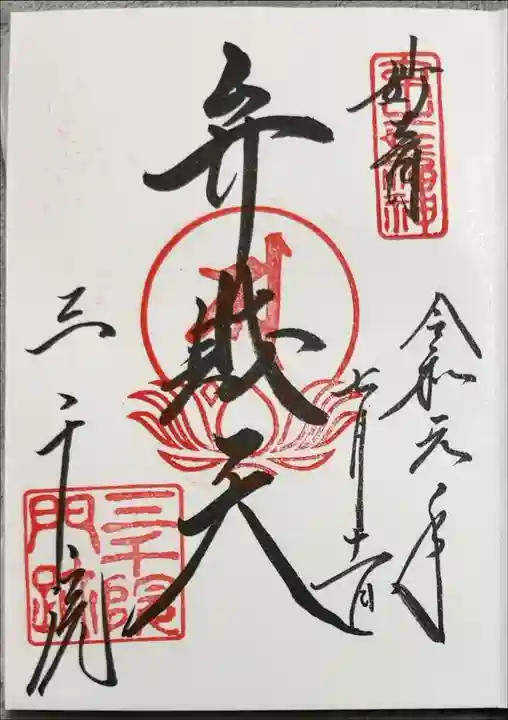 妙音
令和元年
七月十一日
弁戝天
三千院
三千院
門跡